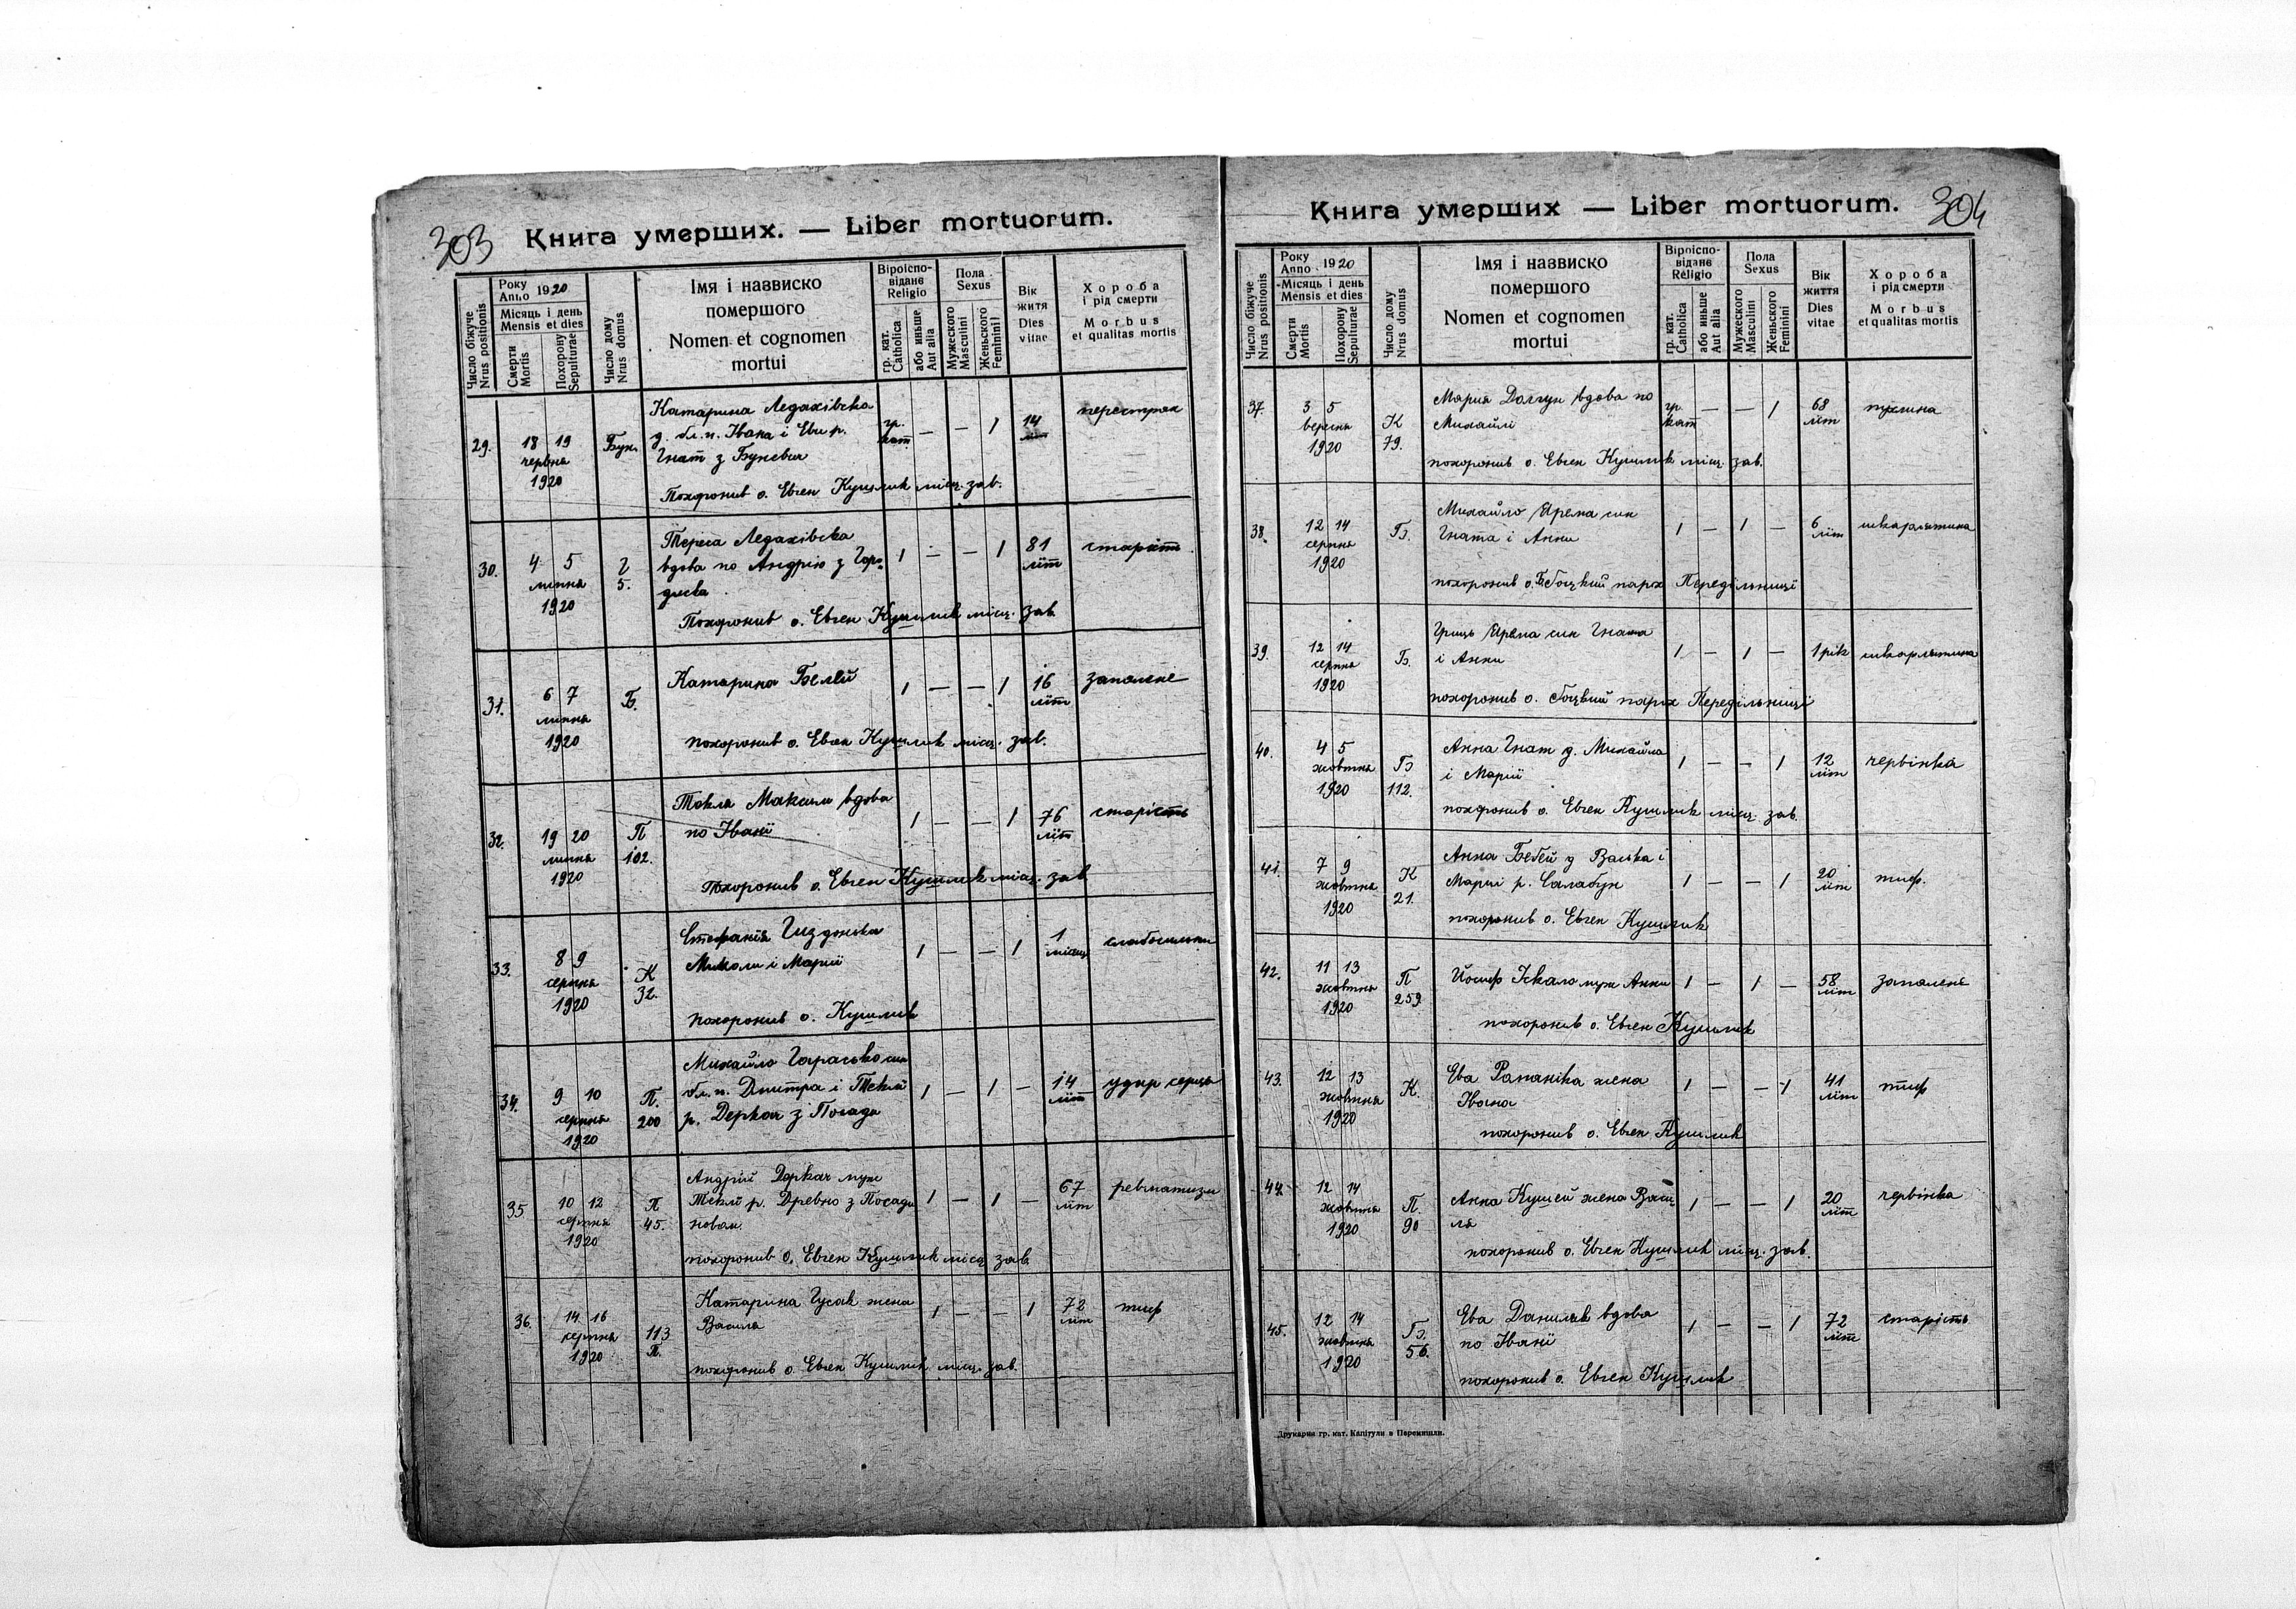 303
Книга умерших. — Liber mortuorum.
Число біжуче
Nrus positionis
Року
Anno 1920
Місяць і день
Mensis et dies
Смерти
Mortis
Похорону
Sepulturae
Число дому
Nrus domus
Імя і назвиско
помершого
Nomen et cognomen
mortui
Віроіспо-
відане
Religio
гр. кат.
Catholica
або иньше
Aut alia
Пола
Sexus
Мужеского
Masculini
Женьского
Feminini
Вік
житя
Dies
vitae
Хороба
і рід смерти
Morbus
et qualitas mortis
29. 18 19 червня 1920 Бун.
Катарина Ледахівска
д. бл. п. Івана і Еви р.
Гнат з
гр. кат — — 1 14 літ перестрах
Похоронив о. Евген Кушлик місц. зав.
30. 4 5 липня 1920 Г 5.
Тереса Ледахівска
вдова по Андрію з Горо-
диска
1 — — 1 81 літ старість
Похоронив о. Евген Кушлик місц. зав.
31. 6 7 липня 1920 Б.
Катарина Белей
1 — — 1 16 літ запалене
похоронив о. Евген Кушлик місц. зав.
32. 19 20 липня 1920 П 102.
Текля Максим вдова
по Івані
1 — — 1 76 літ старість
Похоронив о. Евген Кушлик місц. зав.
33. 8 9 серпня 1920 К 32.
Стефанія
Миколи і Марії
1 — — 1 1 місяць
похоронив о. Кушлик
34. 9 10 серпня 1920 П. 200
Михайло Гарасько син
бл. п. Дмитра і Теклї
р. Деркач з Посади
1 — 1 — 14 літ удар серця
35. 10 12 серпня 1920 П 45.
Андрій Деркач муж
Теклї р. Древко з Посади
новом.
1 — 1 — 67 літ ревматизм
похоронив о. Евген Кушлик місц. зав.
36. 14 16 серпня 1920 113 П.
Катарина Гусак жена
Василя
1 — — 1 72 літ тиф
похоронив о. Евген Кушлик місц. зав.
Книга умерших — Liber mortuorum.
304
Число біжуче
Nrus positionis
Року
Anno 1920
Місяць і день
Mensis et dies
Смерти
Mortis
Похорону
Sepulturae
Число дому
Nrus domus
Імя і назвиско
помершого
Nomen et cognomen
mortui
Віроіспо-
відане
Religio
гр. кат.
Catholica
або иньше
Aut alia
Пола
Sexus
Мужеского
Masculini
Женьского
Feminini
Вік
життя
Dies
vitae
Хороба
і рід смерти
Morbus
et qualitas mortis
37. 3 5 вересня 1920 К 79.
Мария Долгун вдова по
Михайлі
гр. кат — — 1 68 літ пухлина
похоронив о. Евген Кушлик місц. зав.
38. 12 14 серпня 1920 Б.
Михайло Ярема син
Гната і Анни
1 — 1 — 6 літ шкарлятина
похоронив о. парох Передільниці
39. 12 14 серпня 1920 Б.
Гриць Ярема син Гната
і Анни
1 — 1 — 1 рік шкарлятина
похоронив о. парох Передільниці
40. 4 5 жовтня 1920 Б 112.
Анна Гнат д. Михайла
і Марії
1 — — 1 12 літ червінка
похоронив о. Евген Кушлик місц. зав.
41. 7 9 жовтня 1920 К 21.
Анна Бебей д Васька і
Марії р. Салабун
1 — — 1 20 літ тиф.
похоронив о. Евген Кушлик
42. 11 13 жовтня 1920 П 259
Йосиф Іскало муж Анни
1 — 1 — 58 літ запалене
похоронив о. Евген Кушлик
43. 12 13 жовтня 1920 К.
Ева жена
Івана
1 — — 1 41 літ тиф
похоронив о. Евген Кушлик
44. 12 14 жовтня 1920 П. 90
Анна Кушей жена Васи-
ля
1 — — 1 20 літ червінка
похоронив о. Евген Кушлик місц. зав.
45. 12 14 жовтня 1920 Б. 56.
Ева Даниляк вдова
по Івані
1 — — 1 72 літ старість
похоронив о. Евген Кушлик
Друкарня гр. кат. Капітули в Перемишли.